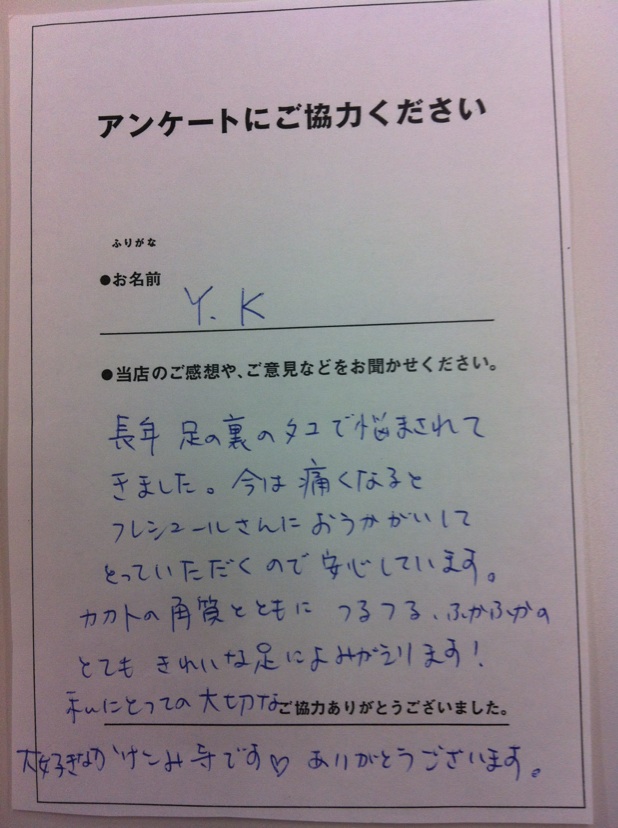 アンケートにご協力ください
ふりがな
●お名前
Y.K
●当店のご感想や、ご意見などをお聞かせください。
長年 足の裏のタコで悩まされて
きました。今は痛くなると
フレシュールさんにおうかがいして
とっていただくので安心しています。
カカトの角質とともに つるつる、ふかふかの
とても きれいな足によみがえります!
私にとっての大切な
ご協力ありがとうございました。
大好きなかけこみ寺です♡ ありがとうございます。